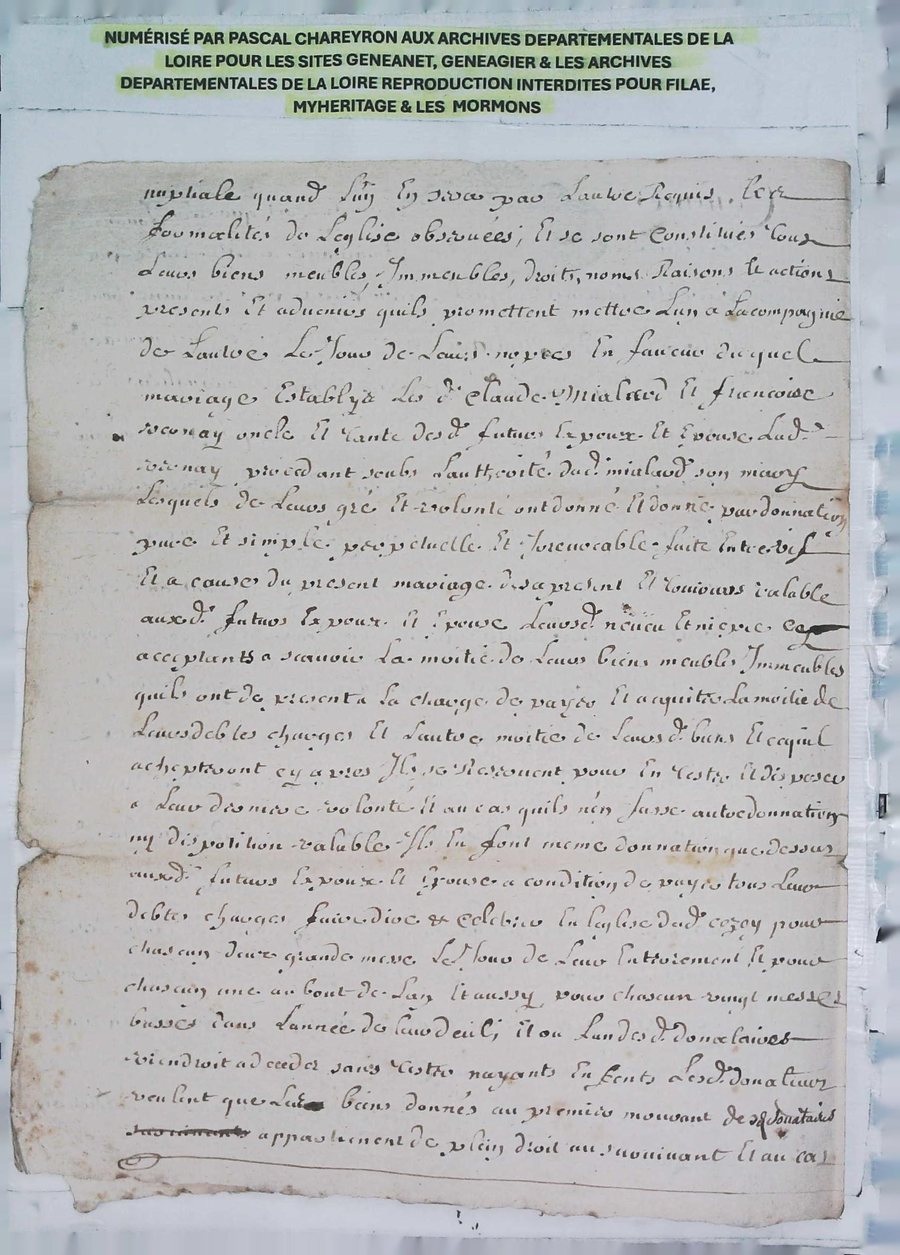 NUMÉRISÉ PAR PASCAL CHAREYRON AUX ARCHIVES DEPARTEMENTALES DE LA
LOIRE POUR LES SITES GENEANET, GENEAGIER & LES ARCHIVES
DEPARTEMENTALES DE LA LOIRE REPRODUCTION INTERDITES POUR FILAE,
MYHERITAGE & LES MORMONS
nuptiale quand Lun En sera par Lautre Requis, les
formalités de Leglise observées; Et se sont Constitués tous
Leurs biens meubles, Immeubles, droits, noms Raisons Et actions
presents Et advenirs quils promettent mettre Lun a Lacompagnie
de Lautre Le Jour de Leurs nopces En faveur duquel
mariage Establys Les dt Claude Mialard Et francoise
oncle Et tante des dt futurs Expoux Et Epouse Lad.
procedant soubs Lauthorité dud. mialard son mary
Lesquels de Leurs gré Et volonté ont donné Et donne par donnation
pure Et simple perpetuelle Et Irrevocable faite Entre vif
Et a cause du present mariage des a present Et toujours valable
auxd. futurs Expoux Et Epouse Leursd. neveu Et niepce
acceptants a scavoir La moitié de Leurs biens meubles Immeubles
quils ont de present a La charge de payer Et acquitter La moitie de
Leurs debtes charges Et Lautre moitie de Leursd. biens Et cequil
achepteront cy apres Ils se Reservent pour En tester Et disposer
a Leur derniere volonté Et au cas quils nen fasse autre donnation
ny disposition valable Ils En font meme donnation que dessus
auxd. futurs Expoux Et Epouse a condition de payer tous Leurs
debtes charges faire dire & Celebrer En Leglise dud. cezay pour
chascun deux grande messe Le Jour de Leur Enterrement Et pour
chascun une au bout de Lan Et aussy pour chascun vingt messes
basses dans Lannée de Leur deuil; Et ou Lun desd. donataires
viendroit a deceder sans Estre nayants Enfents Lesd. donateurs
veulent que biens donnés au premier mourant de sd donataires
appartiennent de plein droit au survivant Et au cas